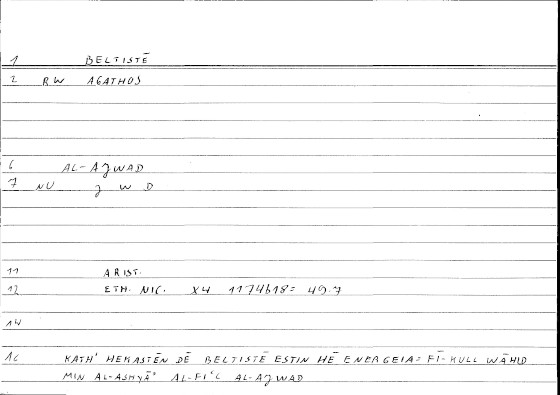 1 BELTISTĒ
2 RW AGATHOS
6 AL-AJWAD
7 NU J W D
11 ARIST.
12 ETH. NIC. X4 1174b18= 49.7
14
16 KATH' HEKASTĒN DĒ BELTISTĒ ESTIN HĒ ENERGEIA= FĪ-KULL WĀHID
MIN AL-ASHYĀ' AL-FI'L AL-AJWAD